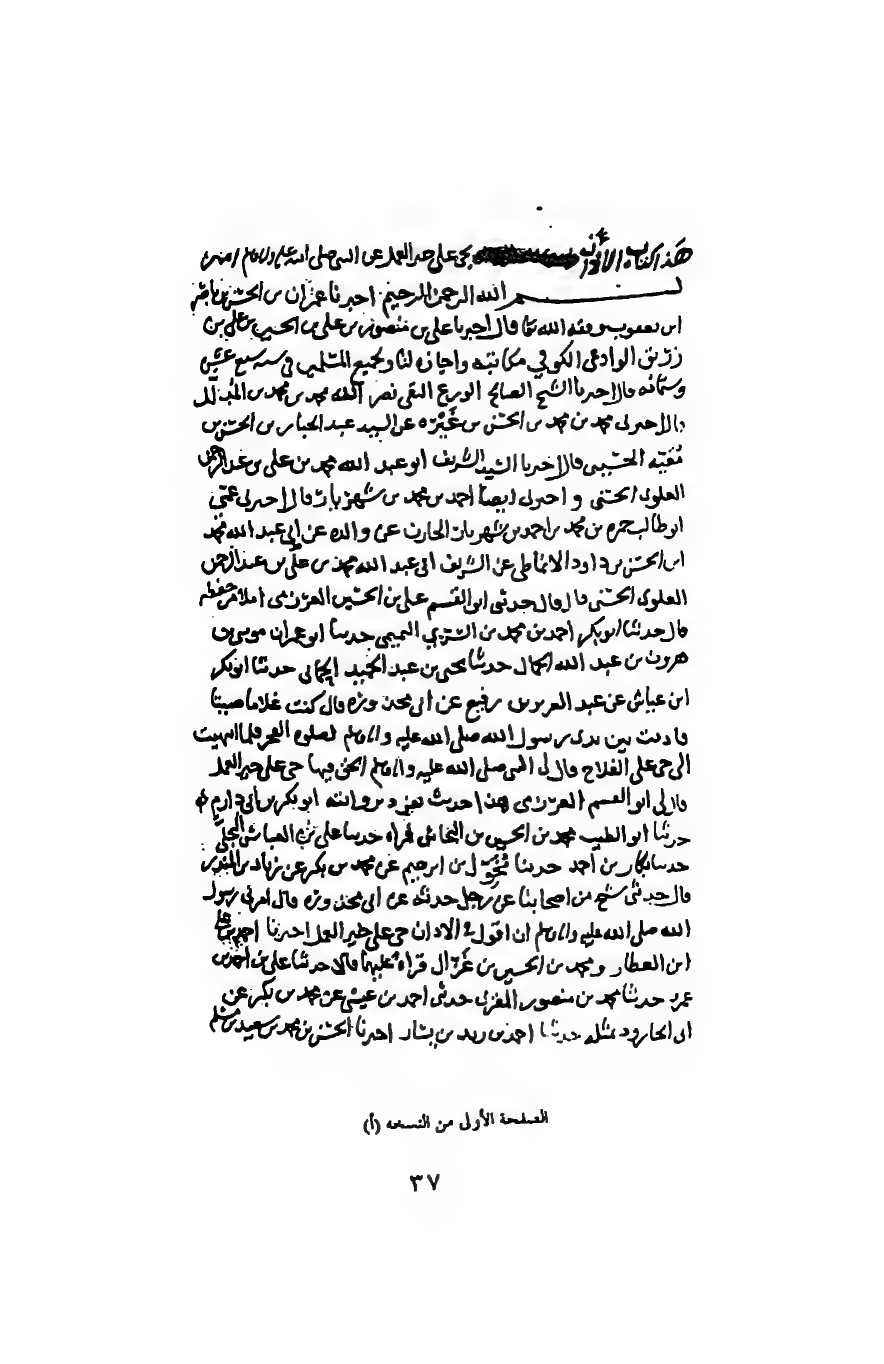 هذا كتاب الأذان بحي على خير العمل عن النبي صلى الله عليه واله وسلم
بسم الله الرحمن الرحيم اخبرنا عمران بن الحسن بن ناصر
ابن يعقوب وفقه الله تعالى قال اخبرنا علي بن منصور بن علي بن الحسين بن علي بن
رزين الوادعي الكوفي مكاتبة واجازه لنا ولجميع المسلمين في سنه سبع عشر
وستمائه قال اخبرنا الشيخ الصالح الورع التقي نصر الله محمد بن محمد بن المدلل
قال اخبرني محمد بن محمد بن الحسن بن غبره عن السيد عبد الجبار بن الحسن بن
معيه الحسيني قال اخبرنا السيد الشريف ابو عبد الله محمد بن علي بن عبد الرحمن
العلوي الحسني واخبرني ايضا احمد بن محمد بن شهريار قال اخبرني عمي
ابو طالب حمزه بن محمد بن احمد بن شهريار الخازن عن والده عن ابي عبد الله محمد
ابن الحسن بن داود الانماطي عن الشريف ابي عبد الله محمد بن علي بن عبد الرحمن
العلوي الحسني قال قال حدثني ابو القسم علي بن الحسين العرزمي املا من حفظه
قال حدثنا ابو بكر احمد بن محمد بن السري التميمي حدثنا ابو عمران موسى بن
هرون بن عبد الله الحمال حدثنا يحيى بن عبد الحميد الحماني حدثنا ابو بكر
ابن عياش عن عبد العزيز بن رفيع عن ابي محذوره قال كنت غلاما صبيتا
فاذنت بين يدي رسول الله صلى الله عليه واله وسلم لصلوه الفجر فلما انتهيت
الى حي على الفلاح قال لي النبي صلى الله عليه واله وسلم الحق فيها حي على خير العمل
قال لي ابو القسم العرزمي هذا حديث تفرد بروايته ابو بكر بن ابي دارم
حدثنا ابو الطيب محمد بن الحسين بن النخاس قراه حدثنا علي بن العباس البجلي
حدثنا بكار بن احمد حدثنا مخول بن ابرهيم عن محمد بن بكر عن زياد بن المنذر
قال حدثني شيخ من اصحابنا عن رجل حدثه عن ابي محذوره قال امرني رسول
الله صلى الله عليه واله وسلم ان اقول في الاذان حي على خير العمل اخبرنا احمد بن علي
ابن العطار ومحمد بن الحسين بن غزال قراه عليهما قالا حدثنا علي بن احمد بن
عمرو حدثنا محمد بن منصور المقرئ حدثني احمد بن عيسى عن محمد بن بكر عن
ابي الجارود بمثله حدثنا احمد بن زيد بن بشار اخبرنا الحسن بن محمد بن سعيد بن مسلم
الصفحة الأولى من النسخه (أ)
٣٧